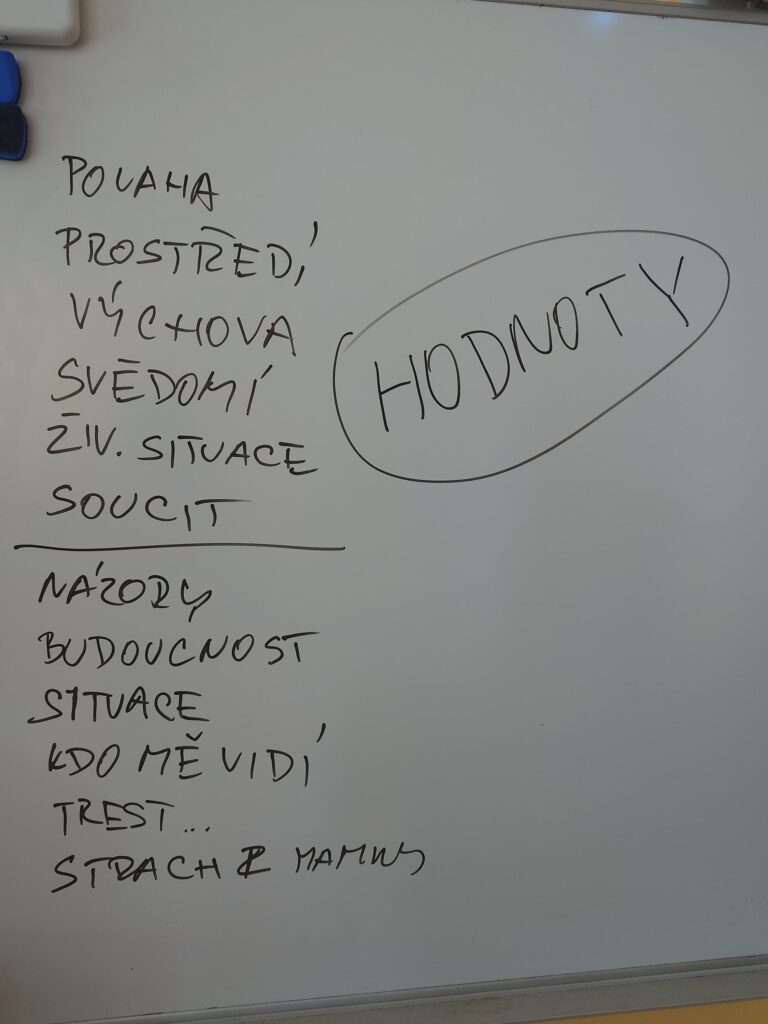 POVAHA
PROSTŘEDÍ
VÝCHOVA
SVĚDOMÍ
ŽIV. SITUACE
SOUCIT
HODNOTY
NÁZORY
BUDOUCNOST
SITUACE
KDO MĚ VIDÍ
TREST...
STRACH Z MAMKY